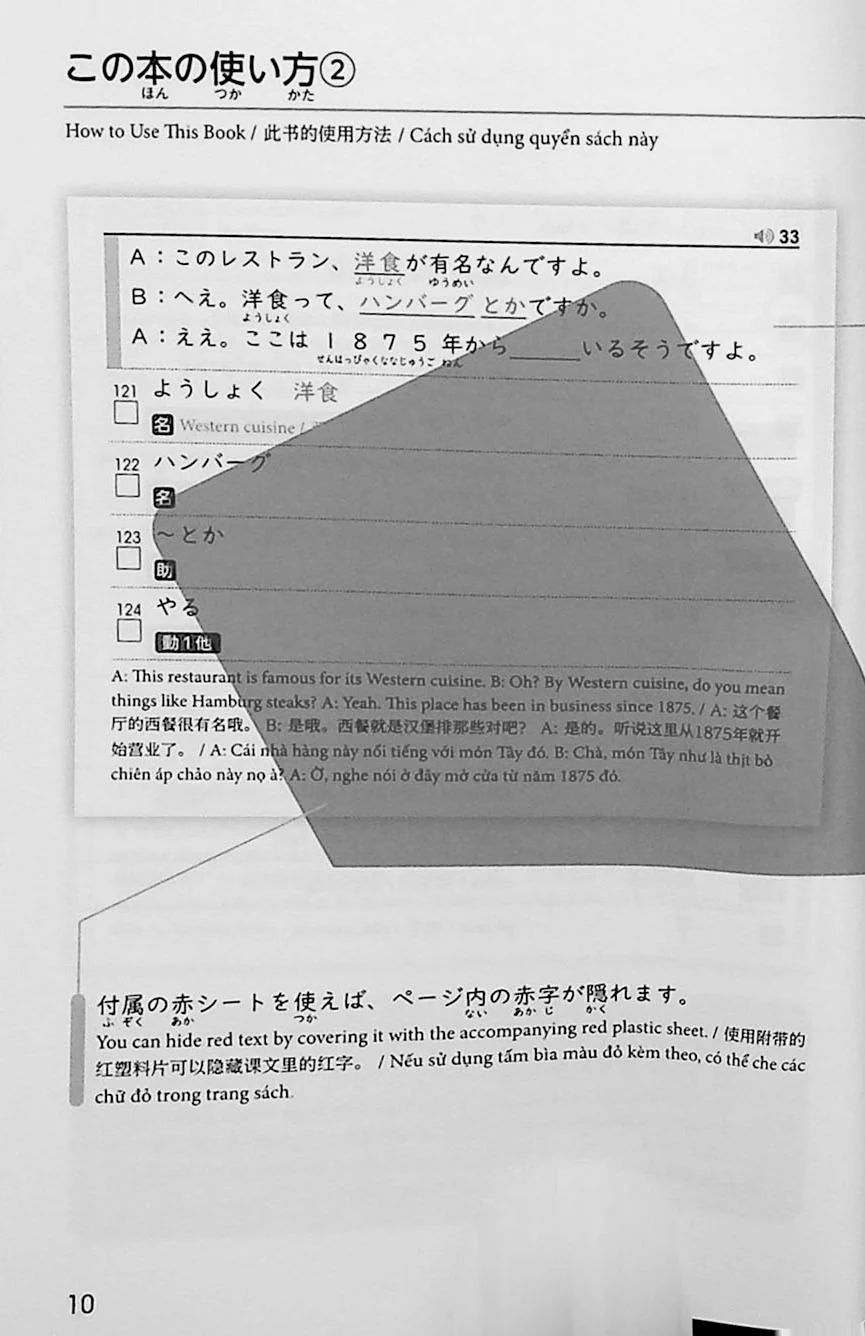 この本の使い方②
ほん つか かた
How to Use This Book / 此书的使用方法 / Cách sử dụng quyển sách này
33
A：このレストラン、洋食が有名なんですよ。
ようしょく ゆうめい
B：へえ。洋食って、ハンバーグとかですか。
ようしょく
A：ええ。ここは1875年から______いるそうですよ。
せんはっぴゃくななじゅうご ねん
121 ようしょく 洋食
名 Western cuisine /
122 ハンバーグ
名
123 ～とか
助
124 やる
動1他
A: This restaurant is famous for its Western cuisine. B: Oh? By Western cuisine, do you mean
things like Hamburg steaks? A: Yeah. This place has been in business since 1875. / A: 这个餐
厅的西餐很有名哦。 B: 是哦。西餐就是汉堡排那些对吧？ A: 是的。听说这里从1875年就开
始营业了。 / A: Cái nhà hàng này nổi tiếng với món Tây đó. B: Chà, món Tây như là thịt bò
chiên áp chảo này nọ à? A: Ờ, nghe nói ở đây mở cửa từ năm 1875 đó.
付属の赤シートを使えば、ページ内の赤字が隠れます。
ふ ぞく あか つか ない あか じ かく
You can hide red text by covering it with the accompanying red plastic sheet. / 使用附带的
红塑料片可以隐藏课文里的红字。 / Nếu sử dụng tấm bìa màu đỏ kèm theo, có thể che các
chữ đỏ trong trang sách.
10